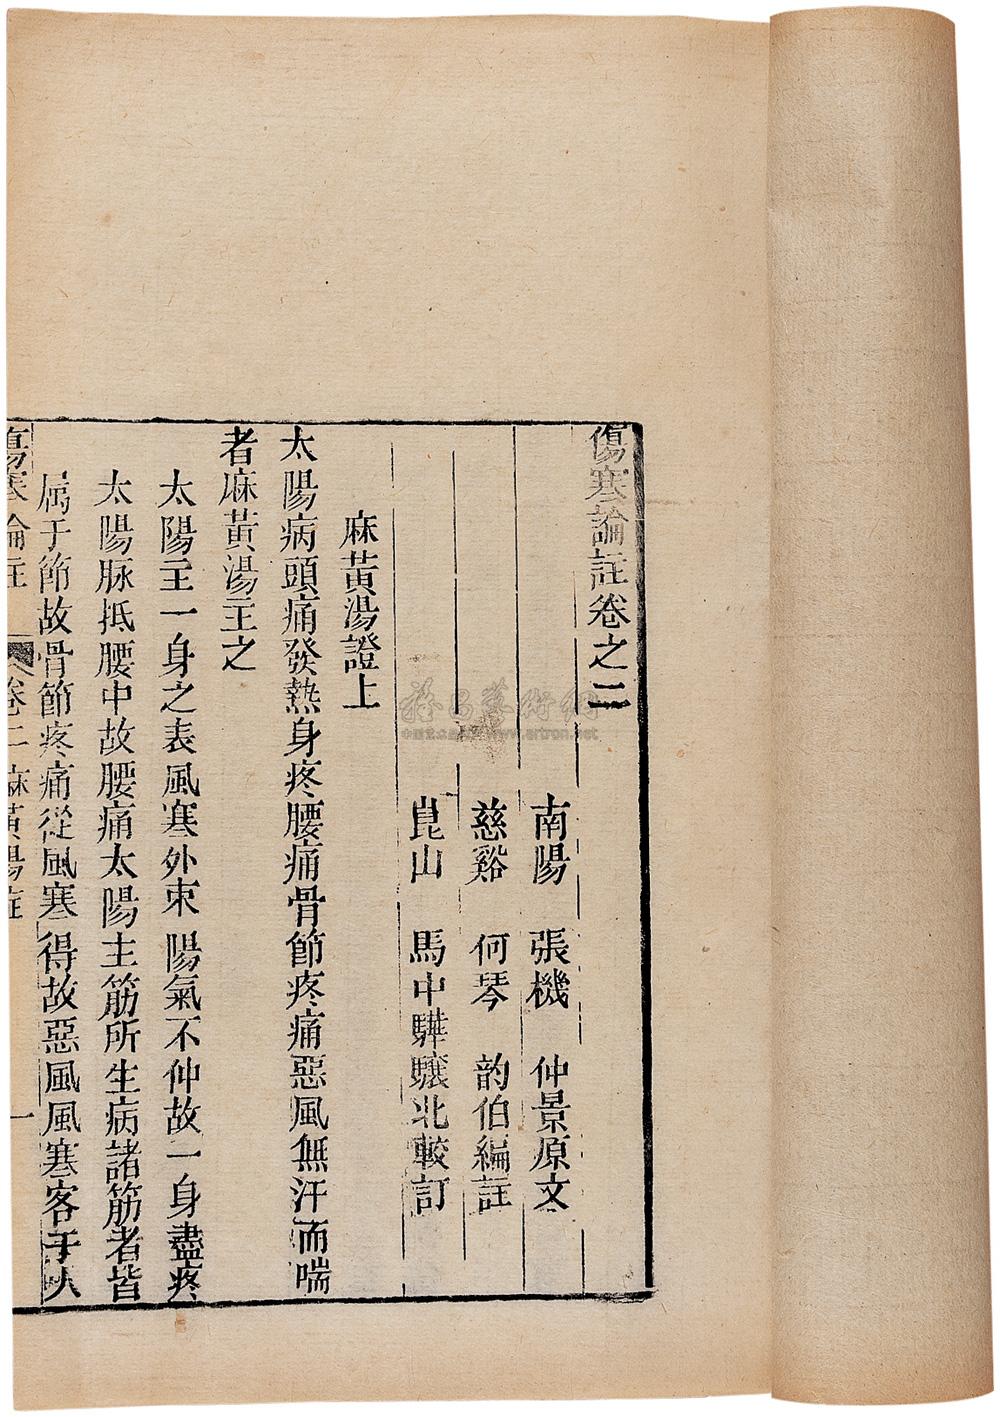 傷寒論註卷之二
南陽 張機 仲景原文
慈谿 何琴 韵伯編註
崑山 馬中驊驤北較訂
麻黃湯證上
太陽病頭痛發熱身疼腰痛骨節疼痛惡風無汗而喘
者麻黃湯主之
太陽主一身之表風寒外束陽氣不伸故一身盡疼
太陽脉抵腰中故腰痛太陽主筋所生病諸筋者皆
属于節故骨節疼痛從風寒得故惡風風寒客于人
傷寒論註 卷二 麻黃湯註 一
www.artron.net